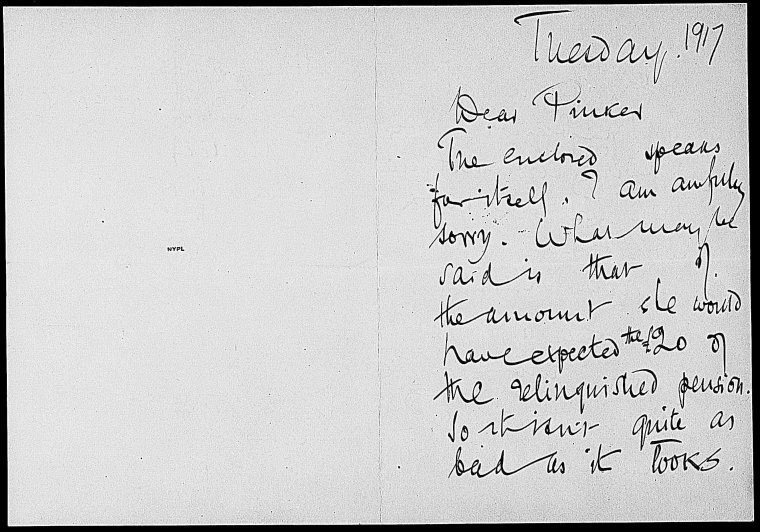 Tuesday. 1917
Dear Pinker
The enclosed speaks
for itself. I am awfully
sorry. What may be
said is that of
the amount she would
have expected the £20 of
the relinquished pension.
So it isn't quite as
bad as it looks.
NYPL